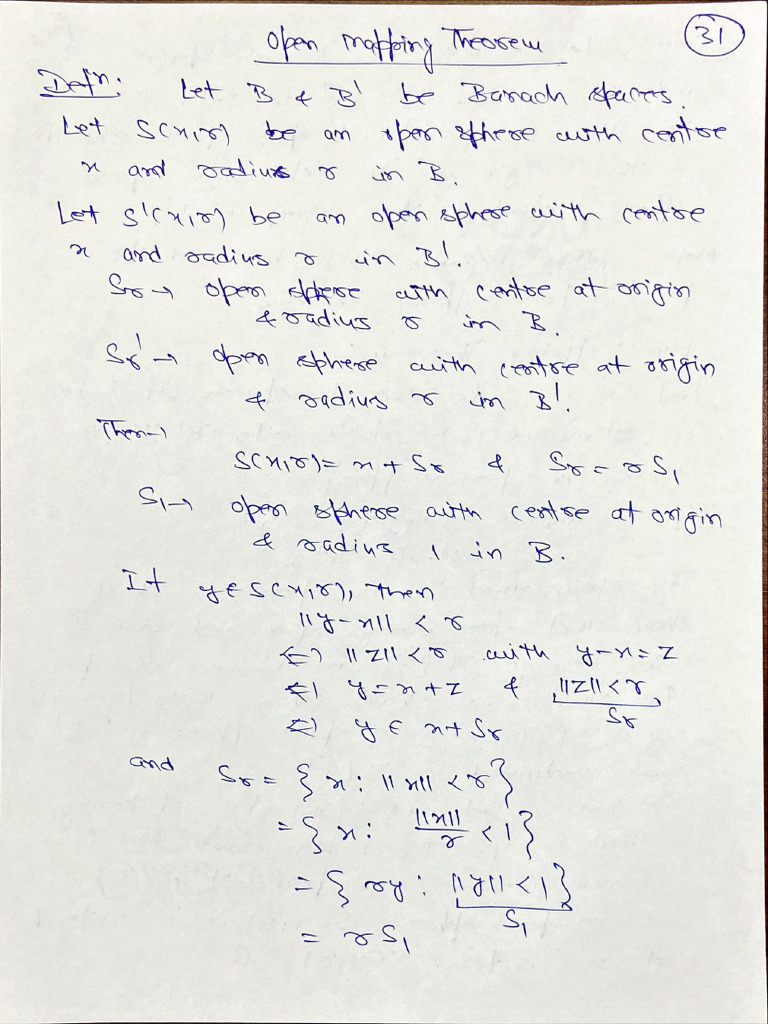 Open Mapping Theorem
31
Defn: Let B & B' be Banach spaces.
Let S(x,r) be an open sphere with centre
x and radius r in B.
Let S'(x,r) be an open sphere with centre
x and radius r in B'.
Sr → open sphere with centre at origin
& radius r in B.
Sr' → open sphere with centre at origin
& radius r in B'.
Then→
S(x,r) = x + Sr & Sr = r S1
S1 → open sphere with centre at origin
& radius 1 in B.
If y ∈ S(x,r), then
||y-x|| < r
⇔ ||z|| < r with y-x = z
⇔ y = x + z & ||z|| < r,
Sr
⇔ y ∈ x + Sr
and Sr = { x : ||x|| < r }
= { x : ||x||/r < 1 }
= { ry : ||y|| < 1 }
S1
= r S1